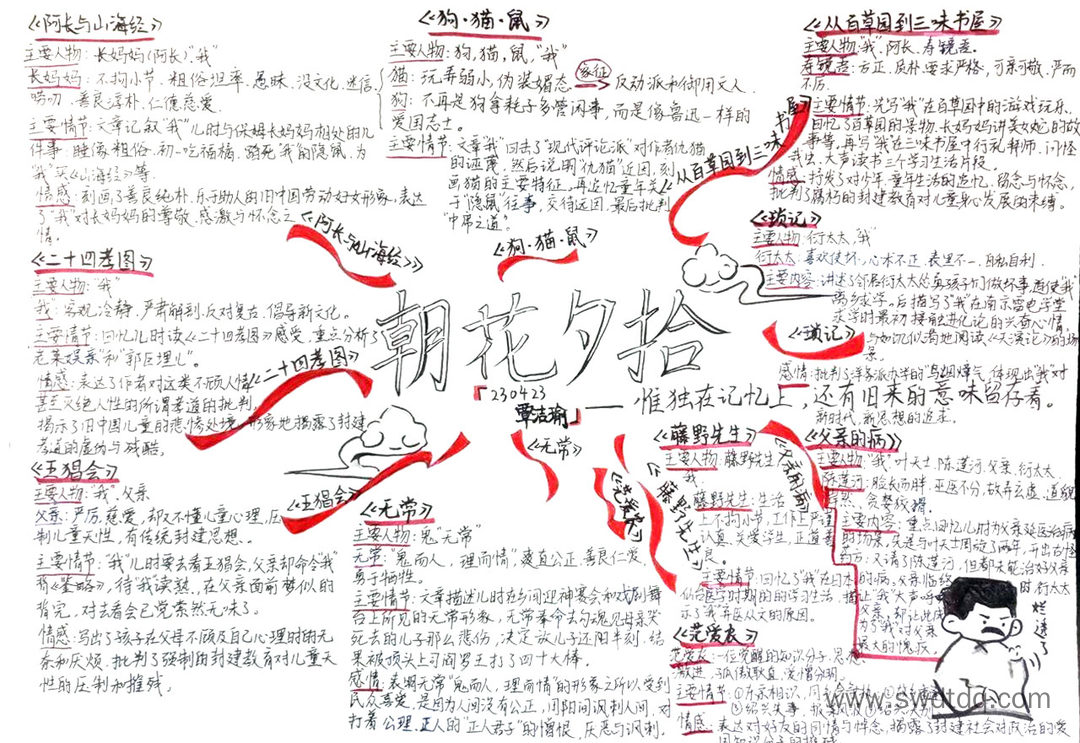 《阿长与山海经》
主要人物：长妈妈(阿长)、"我"
长妈妈：不拘小节、粗俗坦率、愚昧、没文化、迷信、
唠叨、善良淳朴、仁慈慈爱。
主要情节：文章记叙"我"儿时与保姆长妈妈相处的几
件事：睡像粗俗、初一吃福橘、踏死"我"的隐鼠、为
"我"买《山海经》等。
情感：刻画了善良纯朴、乐于助人的旧中国劳动妇女形象，表达
了"我"对长妈妈的尊敬、感激与怀念之
情。
《狗·猫·鼠》
主要人物：狗，猫，鼠，"我"
猫：玩弄弱小，伪装媚态 象征 反动派和御用文人
狗：不再是狗拿耗子多管闲事，而是像鲁迅一样的
爱国志士。
主要情节：文章"我"回击了"现代评论派"对作者仇猫
的诬蔑，然后说明"仇猫"近因，刻
画猫的主要特征，再追忆童年关
于"隐鼠"往事，交待远因，最后批判
"中庸之道"。
《从百草园到三味书屋》
主要人物："我"，阿长，寿镜吾。
寿镜吾：方正、质朴，要求严格，可亲可敬，严而
不厉。
主要情节：先写"我"在百草园中的游戏玩乐、
回忆了百草园的景物、长妈妈讲美女蛇的故
事等，再写"我"在三味书屋中行礼拜师、问怪
虫、大声读书三个学习生活片段。
情感：抒发了对少年、童年生活的追忆、留念与怀念，
批判了腐朽的封建教育对儿童身心发展的束缚。
《阿长与山海经》
《狗·猫·鼠》
《从百草园到三味书屋》
《二十四孝图》
主要人物："我"
"我"：客观、冷静、严肃解剖、反对复古、倡导新文化。
主要情节：回忆儿时读《二十四孝图》感受，重点分析了"
老莱娱亲"和"郭巨埋儿"。
情感：表达了作者对这类不顾人情
甚至灭绝人性的所谓孝道的批判，
揭示了旧中国儿童的悲惨处境，形象地揭露了封建
孝道的虚伪与残酷。
《二十四孝图》
朝花夕拾
「230423
覃洁瑜」
——惟独在记忆上，还有旧来的意味留存着。
《琐记》
主要人物：衍太太，"我"
衍太太：喜欢使坏、心术不正、表里不一、自私自利。
主要内容：讲述了邻居衍太太怂恿孩子们做坏事，迫使"我"
离乡求学。后描写了"我"在南京雷电学堂
求学时最初接触进化论的兴奋心情
与如饥似渴地阅读《天演论》的场
景。
感情：批判了洋务派办学的"乌烟瘴气"，体现出"我"对
新时代、新思想的追求。
《琐记》
《五猖会》
主要人物："我"，父亲
父亲：严厉、慈爱，却又不懂儿童心理，压
制儿童天性，有传统封建思想。
主要情节："我"儿时要去看五猖会，父亲却命令"我"
背《鉴略》，待"我"读熟，在父亲面前梦似的
背完，对去看会已觉索然无味了。
情感：写出了孩子在父母不顾及自己心理时的无
奈和厌烦，批判了强制的封建教育对儿童天
性的压制和摧残。
《五猖会》
《无常》
《无常》
主要人物："我"，无常
无常："鬼而人，理而情"，爽直公正、善良仁爱、
勇于牺牲。
主要情节：文章描述儿时在乡间迎神赛会和戏剧舞
台上所见的无常形象，无常奉命去勾魂，见母亲哭
死去的儿子那么悲伤，决定放儿子还阳半刻，结
果被顶头上司阎罗王打了四十大棒。
感情：表明无常"鬼而人，理而情"的形象之所以受到
民众喜爱，是因为人间没有公正，用阴间讽刺人间，对
打着公理、正人的"正人君子"的憎恨、厌恶与讽刺。
《范爱农》
《藤野先生》
《父亲的病》
《藤野先生》
主要人物：藤野先生、
"我"
藤野先生：生活
上不拘小节，工作上严谨
认真、关爱学生、正直善
良。
主要情节：回忆了"我"在日本的
仙台医专时期的的学习生活，描
示了"我"弃医从文的原因。
《父亲的病》
主要人物："我"，叶天士，陈莲河，父亲，衍太太
陈莲河：脸长而胖，巫医不分，故弄玄虚，道貌
岸然，贪婪狡猾。
主要内容：重点回忆儿时为父亲延医治病
的场景，先是与叶天士周旋了两年，开出古怪
药方，又请了陈莲河，但都未能治好父亲
的病，父亲临终时，衍太太
让"我"大声呼
父亲，却让此成
为了"我"对父亲
最大的愧疚。
《范爱农》
范爱农：一位觉醒的知识分子，思想
激进，孤傲耿直，爱憎分明。
情感：表达对好友的同情与悼念，揭露了封建社会对政治的爱
国知识分子的摧残
烂透了
www.swdtdq.com